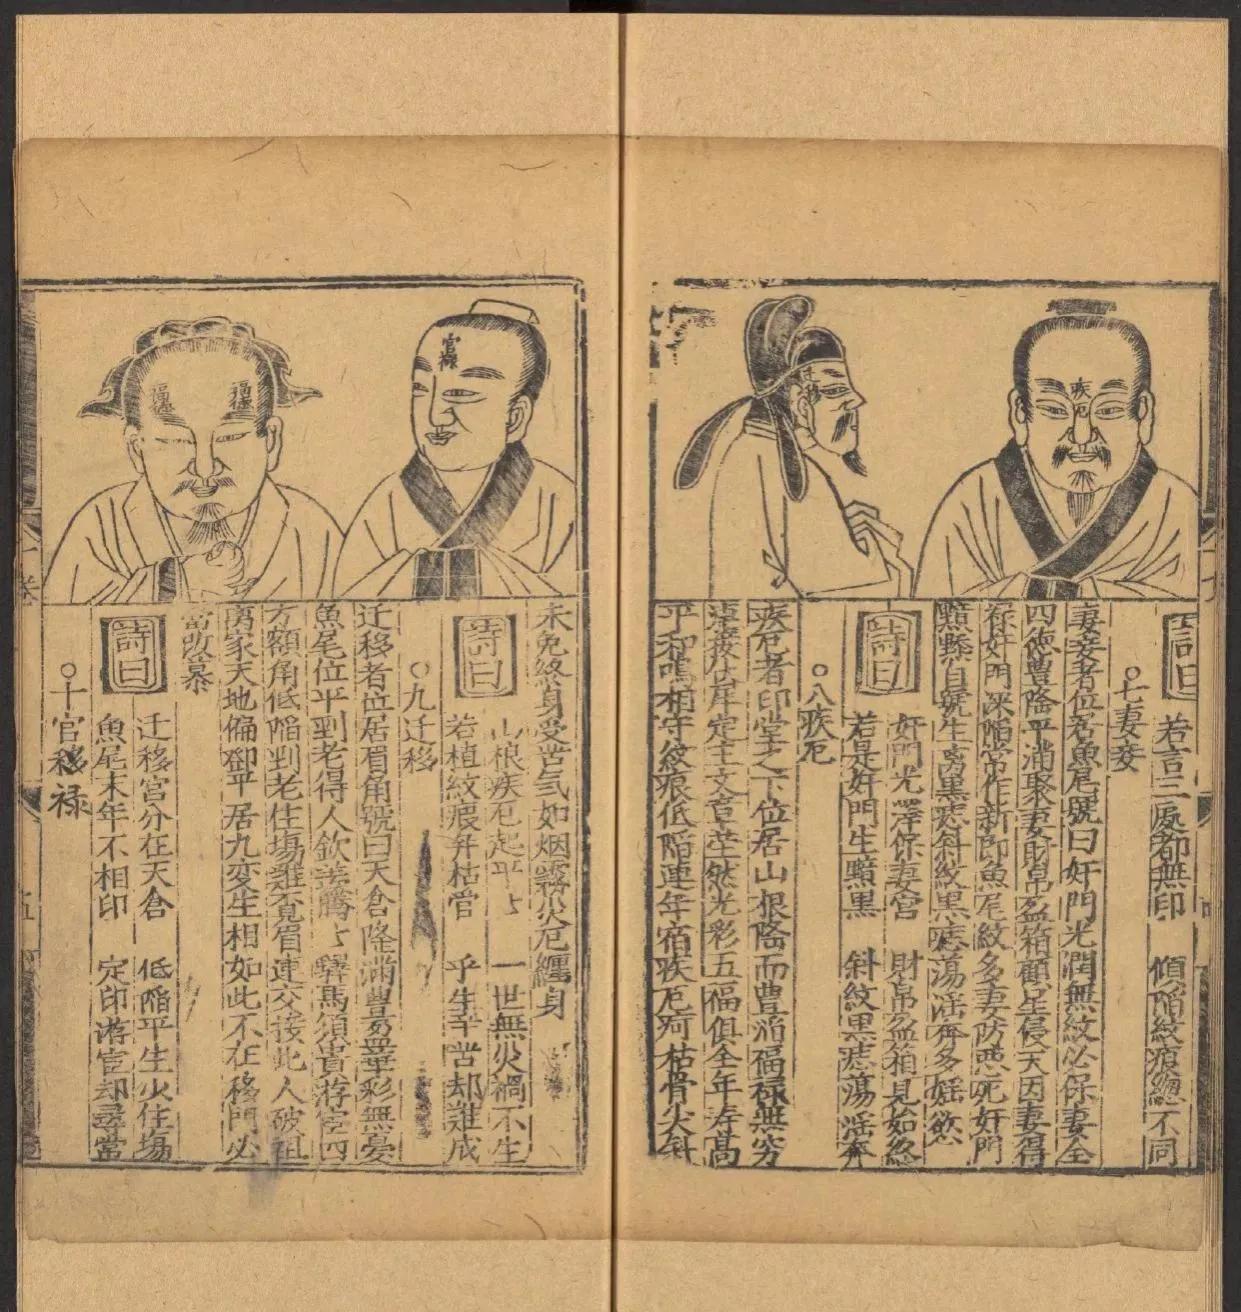 詩曰
若言三處都無印　傾陷紋痕總不同
○七妻妾
妻妾者位居魚尾號曰奸門光潤無紋必保妻全
四德豊隆平滿聚妻財帛盈箱顴星侵天因妻得
禄奸門深陷常作新郎魚尾紋多妻防惡死奸門
黯黲自號生离黑痣斜紋黑痣蕩淫奔多婬慾
奸門光澤保妻宮　財帛盈箱見始終
詩曰
若是奸門生黯黑　斜紋黒痣蕩淫奔
○八疾厄
疾厄者印堂之下位居山根隆而豊滿福禄無穷
連接伏犀定主文章莹然光彩五福俱全年寿髙
平和鳴相守紋痕低陷連年宿疾厄疴枯骨尖斜
未免終身受苦気如烟霧災厄纏身
詩曰
山根疾厄起平七　一世無灾禍不生
若植紋痕并枯骨　平生辛苦却难成
○九迁移
迁移者位居眉角號曰天倉隆滿豊盈華彩無憂
魚尾位平到老得人欽羡騰七驛馬須貴游宦四
方額角低陷到老住塲难覓眉連交接此人破祖
离家天地偏邪平居九变生相如此不在移門必
當改墓
詩曰
迁移宮分在天倉　低陷平生少住塲
魚尾末年不相印　定印游宦却尋常
○十官移禄
官禄
福德
福德
疾厄